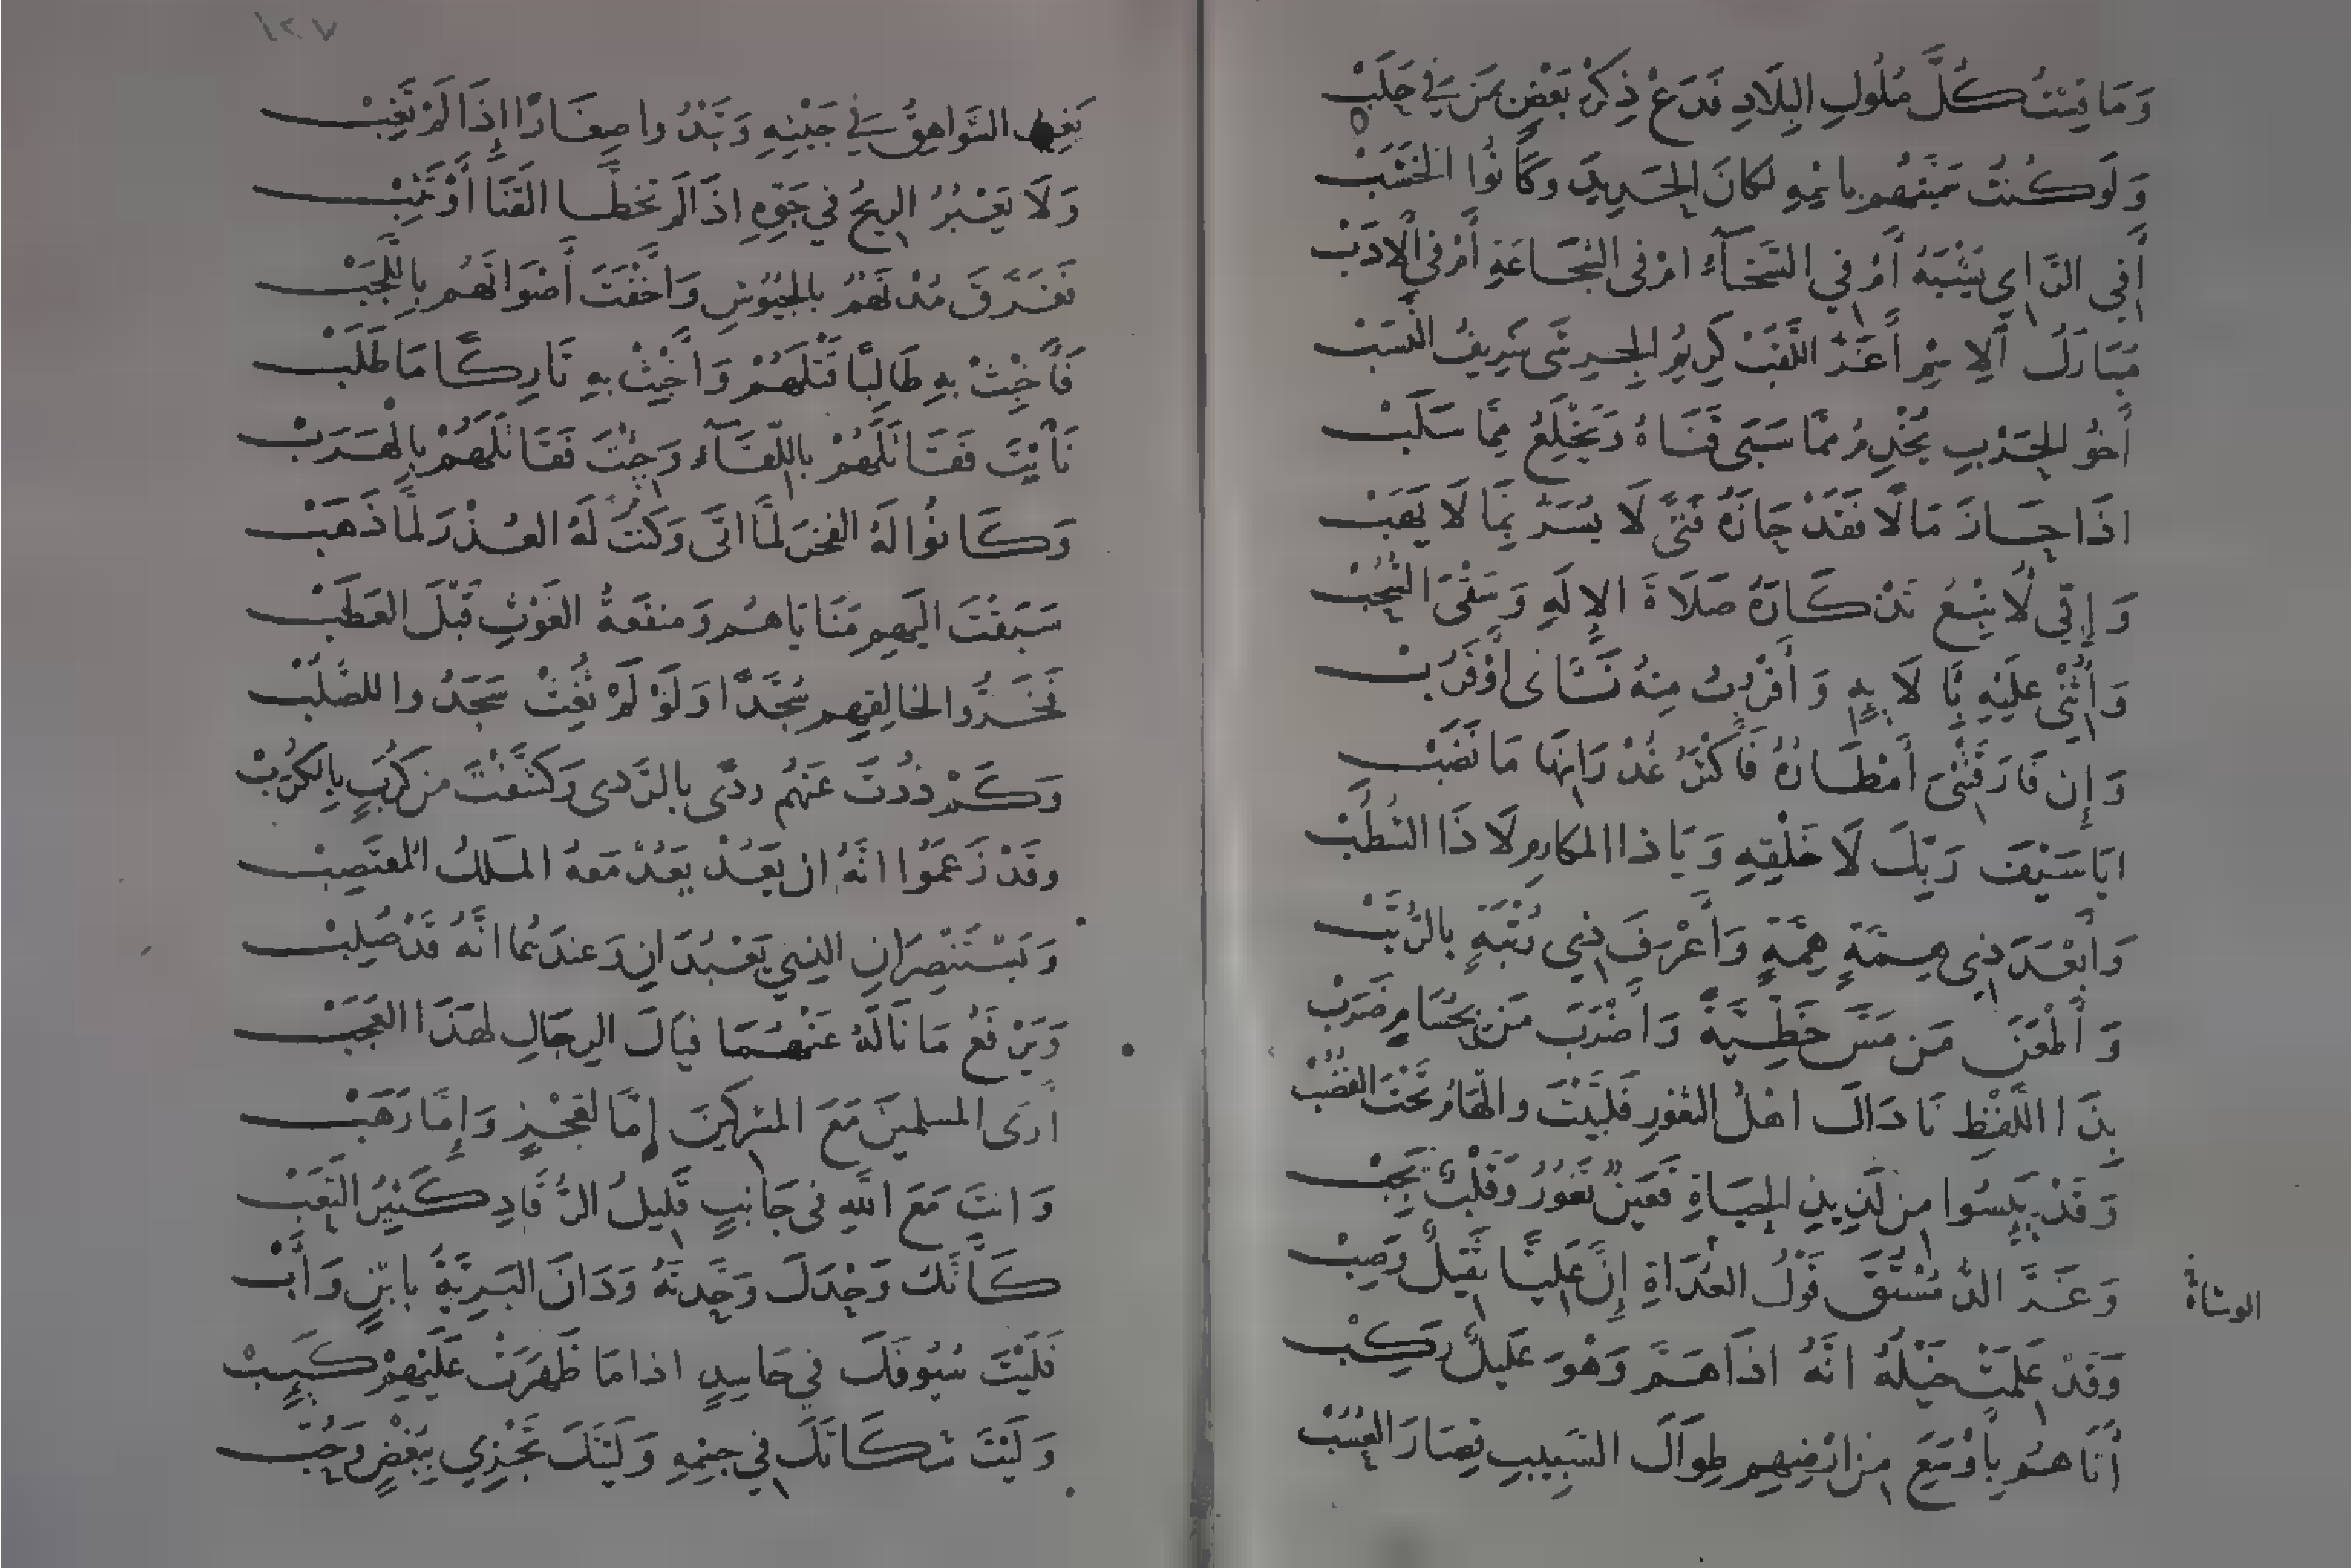 وَمَا قِسْتُ كُلَّ مُلُوكِ البِلَادِ فَدَعْ ذِكْرَ بَعْضٍ بِمَنْ فِي حَلَبْ
وَلَوكُنتُ سَمَّيْتُهُم بِاسْمِهِ لكانَ الحَدِيدَ وكَانُوا الخَشَبْ
أَفِي الرَّايِ يُشْبَهُ أَمْ فِي السَّخَآءِ امْ فى الشَّجَاعَةِ أَمْ فى الأَدَبْ
مُبَارَكُ ألاِسْمِ أَغَرُّ اللَّقَبْ كَرِيمُ الجِرِشَّى شَرِيفُ النَّسَبْ
أَخُو الحَرْبِ يُخْدِمُ مِمَّا سَبَى قَنَاهُ وَيَخْلَعُ مِمَّا سَلَبْ
اذَا حَازَ مَالًا فَقَدْ حَازَهُ فَتًى لَا يُسَرُّ بِمَا لَا يَهَبْ
وَإِنِّي لَأُتْبِعُ تَذْكَارَهُ صَلَاةَ الإِلَهِ وَسَقْىَ السُّحُبْ
وَأُثْنِي عَلَيْهِ بِآلَائِهِ وَأَقْرُبُ مِنْهُ نَأَى أَوْقَرُبْ
وَإِن فَارَقَتْنِىَ أَمْطَارُهُ فَأَكْثَرُ غُدْرَانِهَا مَا نَضَبْ
ايَا سَيْفَ رَبِّكَ لَا خَلْقِهِ وَيَا ذا المكارِمِ لَا ذَا الشُّطَبْ
وَأَبْعَدَ ذِي هِمَّةٍ هِمَّةً وَأَعْرَفَ ذِي رُتْبَةٍ بِالرُّتَبْ
وَأَطْعَنَ مَن مَسَّ خَطِّيَّةً وَأَضْرَبَ مَنْ بِحُسَامٍ ضَرَبْ
بِذَا اللَّفْظِ نَادَاكَ اهْلُ الثغُورِ فَلَبَّيْتَ والهَامُ تَحْتَ القُضُبْ
وَقَدْ يَئِسُوا مِن لَذِيذِ الحَيَاةِ فَعَيْنٌ تَغُورُ وَقَلْبٌ يَجِبْ
وَغَرَّ الدُّمُسْتُقَ قَوْلُ العُدَاةِ إِنَّ عَلِيًّا ثَقِيلٌ وَصِبْ
الوشاةِ
وَقَدْ عَلِمَتْ خَيْلُهُ انَّهُ اذَا هَمَّ وَهْوَ عَلِيلٌ رَكِبْ
أَتَاهُمْ بِأَوْسَعَ مِن ارْضِهِم طِوَالَ السَّبِيبِ قِصَارَ العُسُبْ
١٢٧
تَغِيبُ الشَّوَاهِقُ فِي جَيْشِهِ وَتَبْدُوا صِغَارًا إِذَا لَمْ تَغِبْ
وَلَا تَعْبُرُ الرِّيحُ فِي جَوِّهِ اذَا لَمْ تَخَطَّ القَنَا أَوْ تَثِبْ
فَغَرَّقَ مُدْنَهُمُ بِالجُيُوشِ وَأَخْفَتَ أَصْوَاتَهُم بِاللَّجَبْ
فَأَخْبِثْ بِهِ طَالِبًا قَتْلَهُمْ وَأَخْبِثْ بِهِ تَارِكًا مَا طَلَبْ
نَأَيْتَ فَقَاتَلَهُمْ بِاللِّقَآءِ وَجِئْتَ فَقَاتَلَهُمْ بِالهَرَبْ
وَكَانُوا لَهُ الفَخْرَ لَمَّا اتَى وَكُنْتَ لَهُ العُذْرَ لَمَّا ذَهَبْ
سَبَقْتَ اليهِم مَنَايَاهُم وَمنفَعَةُ الغَوْثِ قَبْلَ العَطَبْ
فَخَرُّوا لخَالِقِهِم سُجَّدًا وَلَوْ لَمْ تُغِثْ سَجَدُوا للصُّلُبْ
وَكَمْ ذُدْتَ عَنْهُم رَدًى بِالرَّدى وَكَشَّفْتَ مِن كُرَبٍ بِالكُرَبْ
وقَدْ زَعَمُوا انَّهُ ان يَعُدْ يَعُدْ مَعَهُ المَلِكُ المُعتَصِبْ
وَيَسْتَنْصِرَانِ الذِي يَعْبُدَانِ وَعِندَهُمَا انَّهُ قَدْ صُلِبْ
وَيَرْفَعُ مَا نَالَهُ عَنْهُمَا فَيَالَ الرِجَالِ لِهَذَا العَجَبْ
أَرَى المسلمينَ مَعَ المشركينَ إِمَّا لعَجْزٍ وَإِمَّا رَهَبْ
وَانتَ مَعَ اللهِ فى جَانِبٍ قَلِيلُ الرُّقَادِ كَثِيرُ التَّعَبْ
كَأَنَّكَ وَحْدَكَ وَحَّدتَهُ وَدَانَ البَرِيَّةُ بِابْنٍ وَأَبْ
فَلَيْتَ سُيُوفَكَ فِي حَاسِدٍ اذا مَا ظَهَرْتَ عَلَيْهِمْ كَئِبْ
وَلَيْتَ شَكَاتَكَ فِي جِسْمِهِ وَلَيْتَكَ تَجْزِي بِبُغْضٍ وَحُبّْ